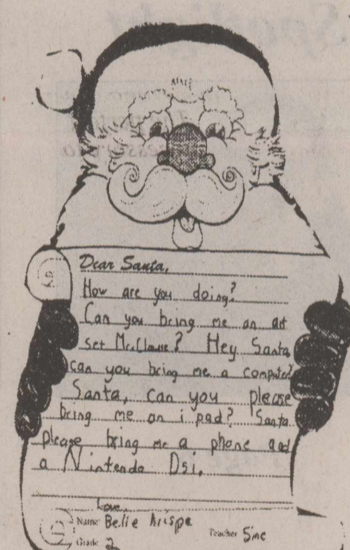 Dear Santa,
How are you doing?
Can you bring me an art
set Mr. Clause? Hey Santa,
can you bring me a computer?
Santa, can you please
bring me an i pad? Santa
please bring me a phone and
a Nintendo Dsi.
Love,
Name Belle
Teacher
Grade 2